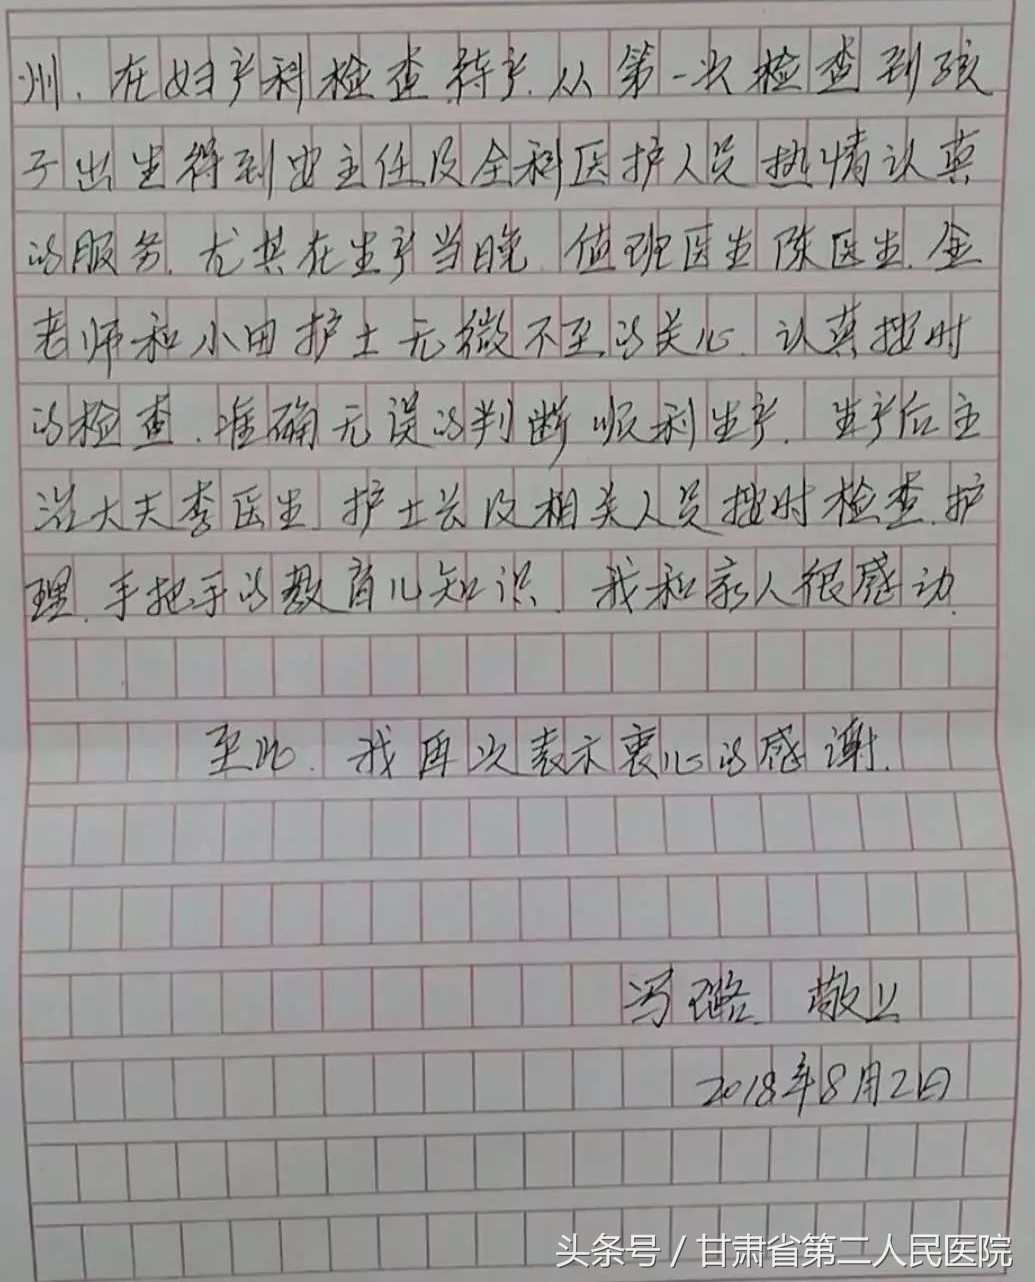 州、在妇产科检查.待产.从第一次检查到孩
子出生得到安主任及全科医护人员热情认真
的服务.尤其在生产当晚.值班医生陈医生.金
老师和小田护士无微不至的关心.认真按时
的检查.准确无误的判断顺利生产.生产后主
治大夫李医生.护士长及相关人员按时检查.护
理.手把手的教育儿知识.我和家人很感动.
至此.我再次表示衷心的感谢.
冯璐 敬上
2018年8月2日
头条号/甘肃省第二人民医院